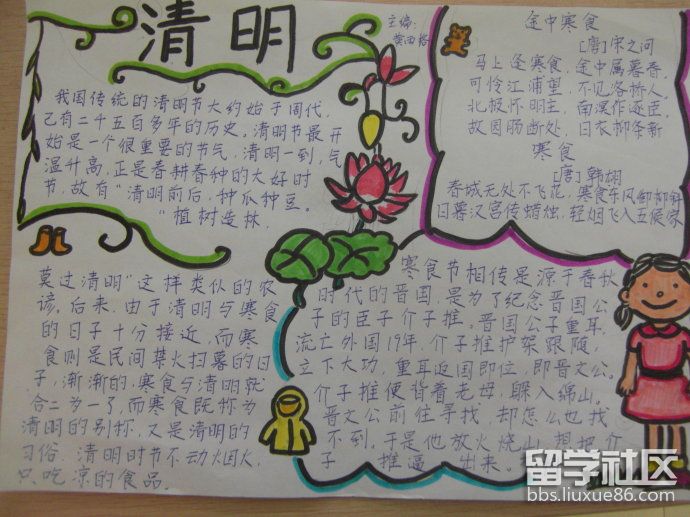 清明
主编:
我国传统的清明节大约始于周代,
已有二千五百多年的历史。清明节最开
始是一个很重要的节气,清明一到,气
温升高,正是春耕春种的大好时
节,故有“清明前后,种瓜种豆。
”“植树造林,
莫过清明”这样类似的农
谚。后来,由于清明与寒食
的日子十分接近,而寒
食则是民间禁火扫墓的日
子,渐渐的,寒食与清明就
合二为一了,而寒食既称为
清明的别称,又是清明的
习俗,清明时节不动烟火,
只吃凉的食品。
途中寒食
[唐]宋之问
马上逢寒食,途中属暮春。
可怜江浦望,不见洛桥人。
北极怀明主,南溟作逐臣。
故园肠断处,日衣柳条新
寒食
[唐]韩翃
春城无处不飞花,寒食东风御柳斜
日暮汉宫传蜡烛,轻烟飞入五侯家
寒食节相传是源于春秋
时代的晋国,是为了纪念晋国公
子的臣子介子推。晋国公子重耳,
流亡外国19年,介子推护驾跟随,
立下大功,重耳返国即位,即晋文公。
介子推便背着老母,躲入绵山。
晋文公前往寻找,却怎么也找
不到,于是他放火烧山,想把介
子推逼出来。
留学社区
bbs.liuxue86.com